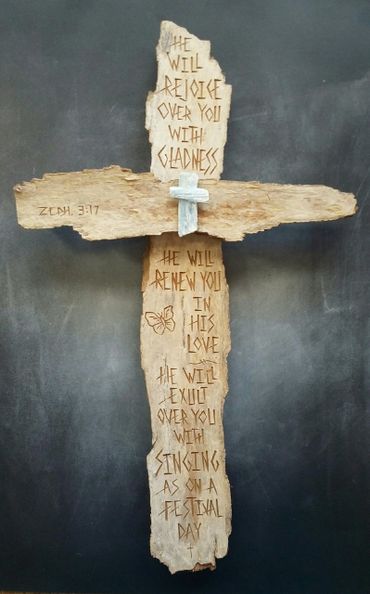 HE
WILL
REJOICE
OVER YOU
WITH
GLADNESS
ZEPH. 3:17
HE WILL
RENEW YOU
IN
HIS
LOVE
HE WILL
EXULT
OVER YOU
WITH
SINGING
AS ON A
FESTIVAL
DAY